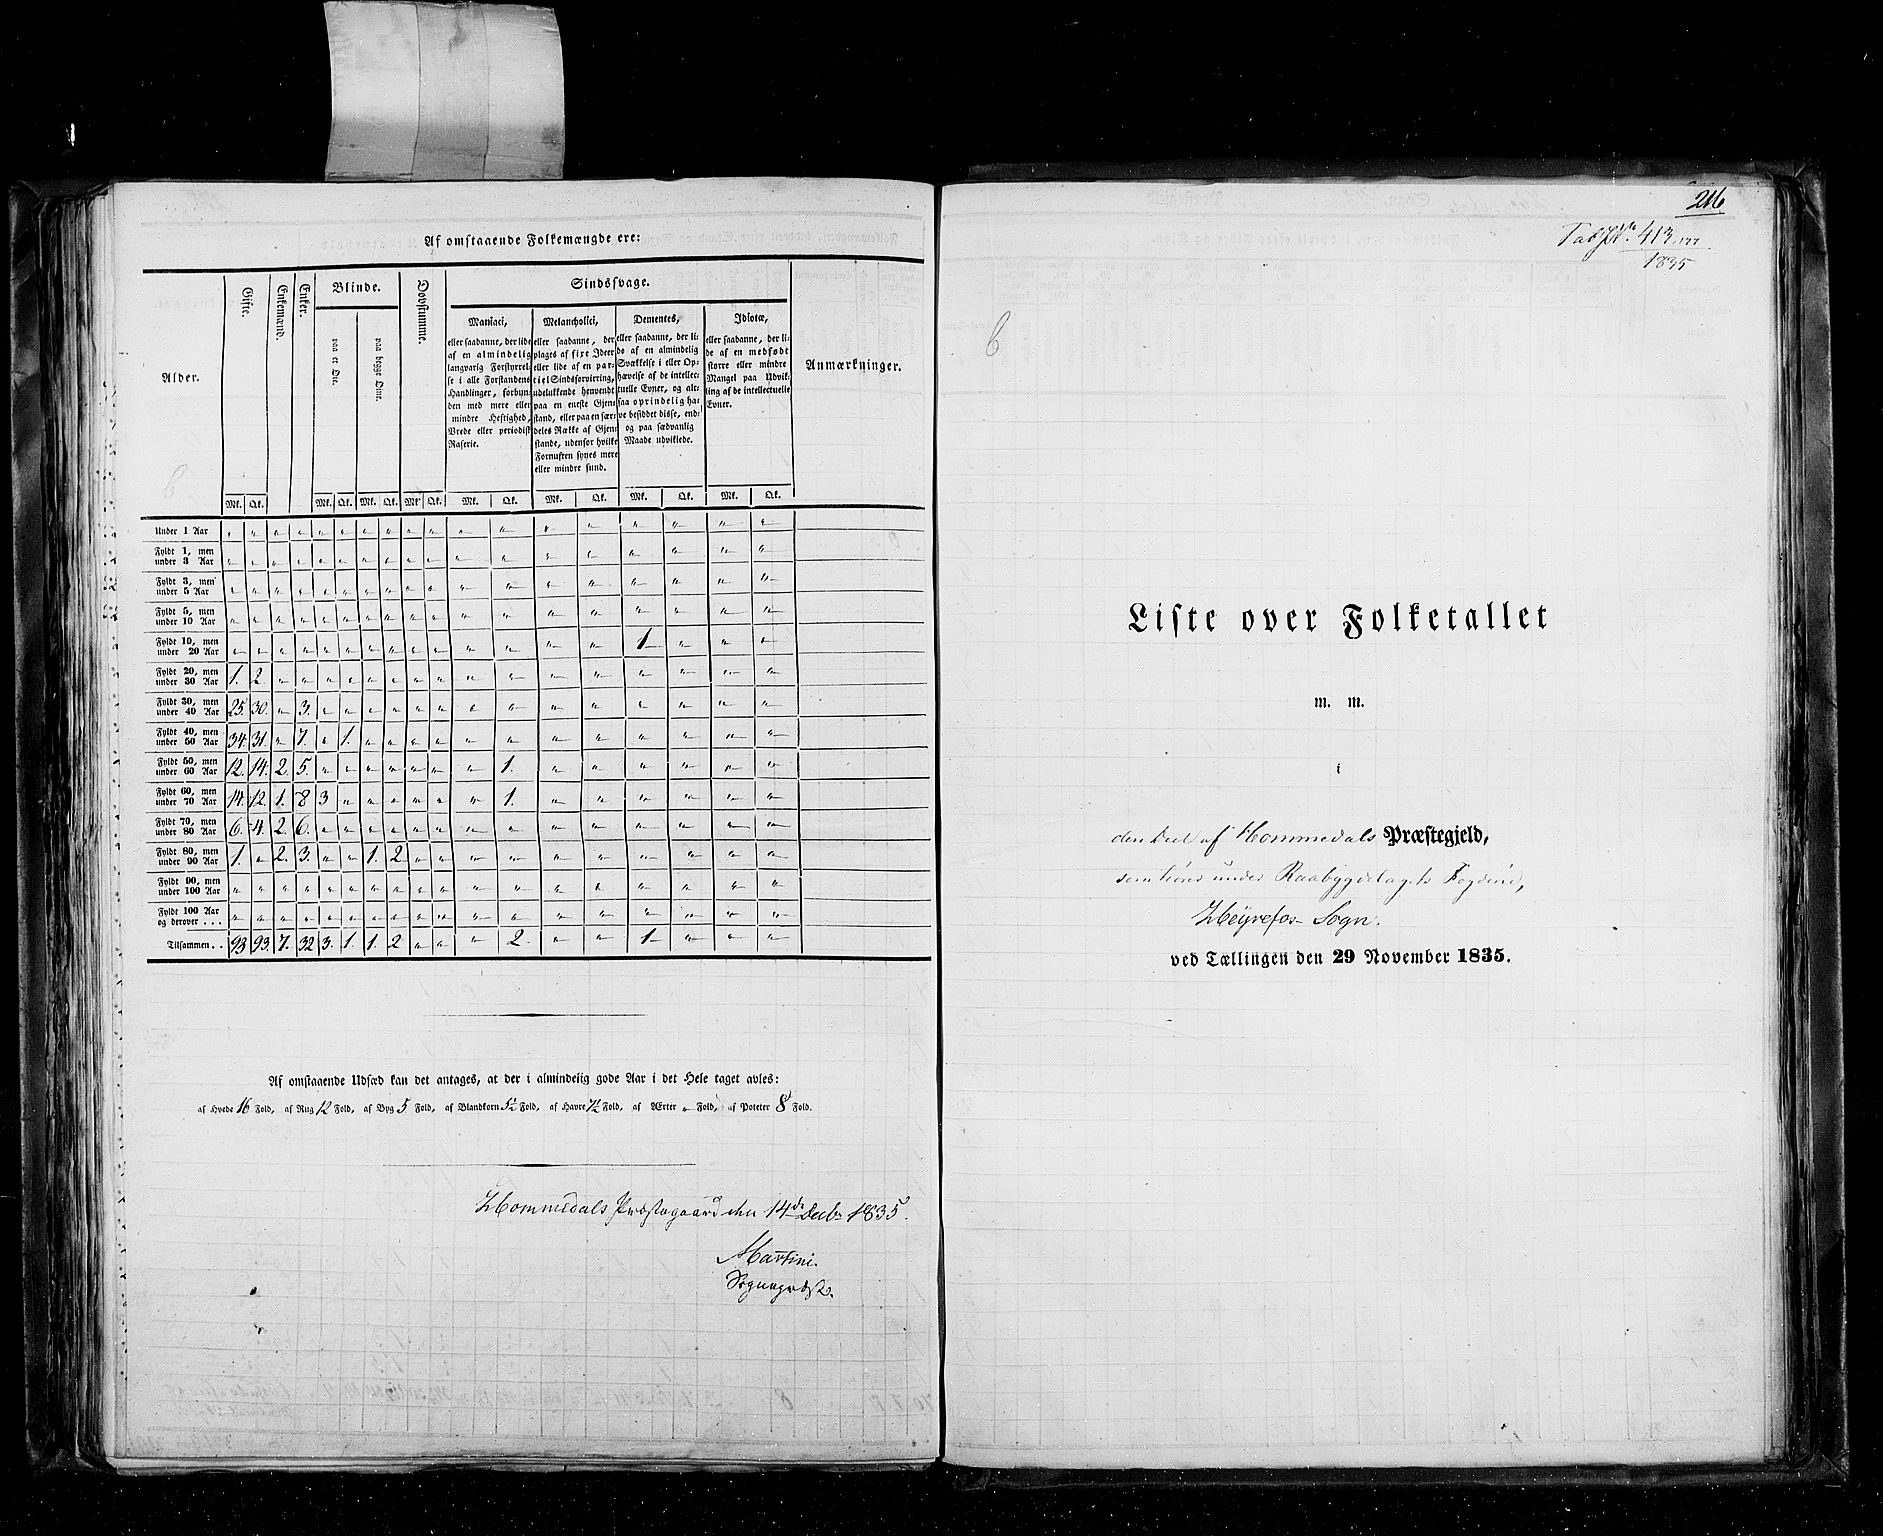 Af omstaaende Folkemængde ere:
Alder. Gifte. Enkemænd. Enker. Blinde. Døvstumme. Sindssvage. Anmærkninger.
paa et Øie. paa begge Øine.
Maniaci,
eller saadanne, der lide
af en almindelig
langvarig Forstyrrel-
se i alle Forstandens
Handlinger, forbun-
den med mere eller
mindre Heftighed,
Vrede eller periodisk
Raserie.
Melancholici,
eller saadanne, der
plages af fixe Ideer
eller lide af en par-
tiel Sindsforvirring,
udelukkende henvendt
paa en eneste Gjen-
stand, eller paa en sær-
deles Række af Gjen-
stande, udenfor hvilke
Fornuften synes mere
eller mindre sund.
Dementes,
eller saadanne, der li-
de af en almindelig
Svækkelse i eller Op-
hævelse af de intellec-
tuelle Evner, og alt-
saa oprindelig ha-
ve besiddet disse, end-
og paa sædvanlig
Maade udviklede.
Idiotæ,
eller saadanne, der li-
de af en medfødt
større eller mindre
Mangel paa Udvik-
ling af de intellectuelle
Evner.
Mk. Qk. Mk. Qk. Mk. Qk. Mk. Qk. Mk. Qk. Mk. Qk. Mk. Qk. Mk. Qk.
Under 1 Aar " " " " " " " " " " " " " " " " " "
Fyldt 1, men under 3 Aar " " " " " " " " " " " " " " " " " "
Fyldt 3, men under 5 Aar " " " " " " " " " " " " " " " " " "
Fyldt 5, men under 10 Aar " " " " " " " " " " " " " " " " " "
Fyldt 10, men under 20 Aar " " " " " " " " " " " " " " 1 " " "
Fyldt 20, men under 30 Aar 1. 2 " " " " " " " " " " " " " " " "
Fyldt 30, men under 40 Aar 25. 30. " 3. " " " " " " " " " " " " " "
Fyldt 40, men under 50 Aar 34. 31. " 7. " 1. " " " " " " " " " " " "
Fyldt 50, men under 60 Aar 12. 14. 2. 5. " " " " " " " 1. " " " " " "
Fyldt 60, men under 70 Aar 14. 12. 1. 8 3 " " " " " " 1. " " " " " "
Fyldt 70, men under 80 Aar 6. 4. 2. 6. " " " " " " " " " " " " " "
Fyldt 80, men under 90 Aar 1. " 2. 3. " " 1. 2 " " " " " " " " " "
Fyldt 90, men under 100 Aar " " " " " " " " " " " " " " " " " "
Fyldt 100 Aar og derover . . . " " " " " " " " " " " " " " " " " "
Tilsammen . . 93 93. 7. 32 3. 1. 1. 2 " " " 2. " " 1 " " "
Af omstaaende Udsæd kan det antages, at der i almindelig gode Aar i det Hele taget avles:
af Hvede 16 Fold, af Rug 12 Fold, af Byg 5 Fold, af Blandkorn 5½ Fold, af Havre 7½ Fold, af Ærter " Fold, af Poteter 8 Fold.
Hommedals Præstegaard den 14de Decbr 1835.
Martini.
Sognepræst.
216
413
1835
6
Liste over Folketallet
m. m.
i
den Deel af Hommedals Præstegjeld,
som hører under Raabygdelagets Fogderie,
Sogn.
ved Tællingen den 29 November 1835.